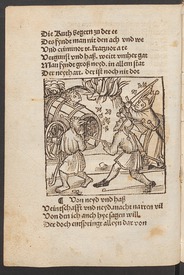 Die Bauch begern zu der ee
Des fynde man nit den ach vnd we
Vnd
Vergunst vnd haß, weit vnher gat
Man fynde groß neyd, in allem stat
Der neythart, der ist noch nit dot
Von neyd vnd haß
Veintschafft vnd neyd macht narren vil
Von den ich auch hye sagen will,
Der doch entspringt alleyn dar von